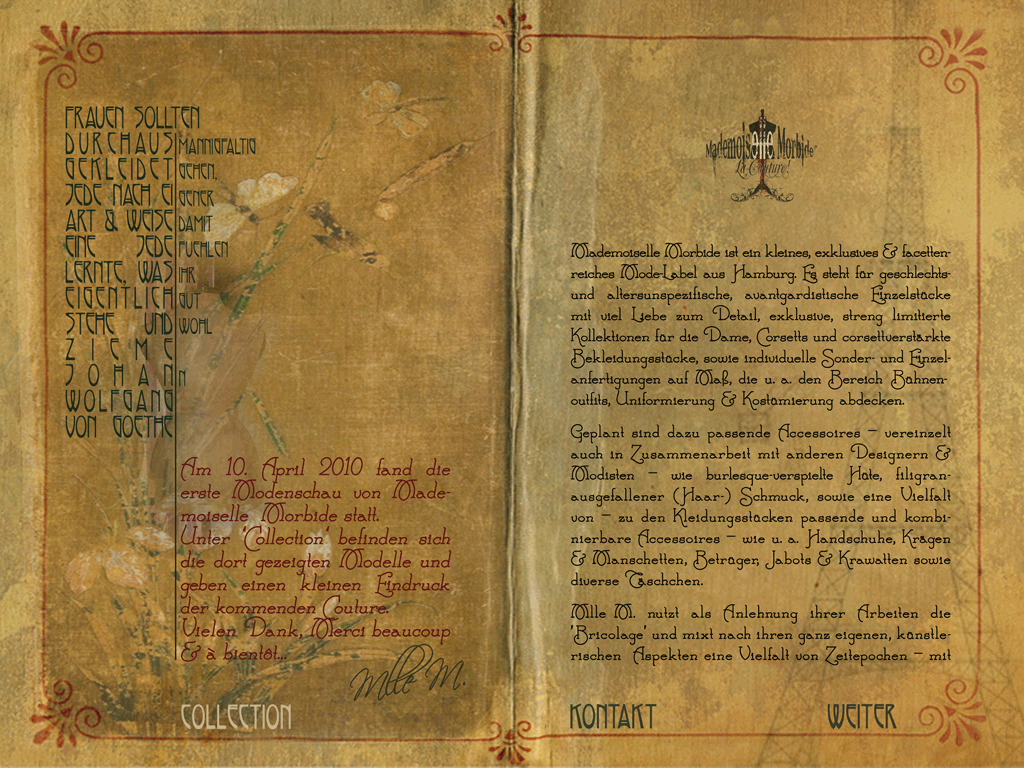 FRAUEN SOLLTEN
DURCHAUS MANNIGFALTIG
GEKLEIDET GEHEN,
JEDE NACH EI GENER
ART & WEISE DAMIT
EINE JEDE FUEHLEN
LERNTE, WAS IHR
EIGENTLICH GUT
STEHE UND WOHL
ZIEME
JOHAN N
WOLFGANG
VON GOETHE
Am 10. April 2010 fand die
erste Modenschau von Made-
moiselle Morbide statt.
Unter 'Collection' befinden sich
die dort gezeigten Modelle und
geben einen kleinen Eindruck
der kommenden Couture.
Vielen Dank, Merci beaucoup
& à bientôt...
Mlle M.
COLLECTION
Mademoiselle Morbide
La Couture!
Mademoiselle Morbide ist ein kleines, exklusives & facetten-
reiches Mode-Label aus Hamburg. Es steht für geschlechts-
und altersunspezifische, avantgardistische Einzelstücke
mit viel Liebe zum Detail, exklusive, streng limitierte
Kollektionen für die Dame, Corsetts und corsettverstärkte
Bekleidungsstücke, sowie individuelle Sonder- und Einzel-
anfertigungen auf Maß, die u. a. den Bereich Bühnen-
outfits, Uniformierung & Kostümierung abdecken.
Geplant sind dazu passende Accessoires – vereinzelt
auch in Zusammenarbeit mit anderen Designern &
Modisten – wie burlesque-verspielte Hüte, filigran-
ausgefallener (Haar-) Schmuck, sowie eine Vielfalt
von – zu den Kleidungsstücken passende und kombi-
nierbare Accessoires – wie u. a. Handschuhe, Krägen
& Manschetten, Betrüger, Jabots & Krawatten sowie
diverse Täschchen.
Mlle M. nutzt als Anlehnung ihrer Arbeiten die
'Bricolage' und mixt nach ihren ganz eigenen, künstle-
rischen Aspekten eine Vielfalt von Zeitepochen – mit
KONTAKT WEITER